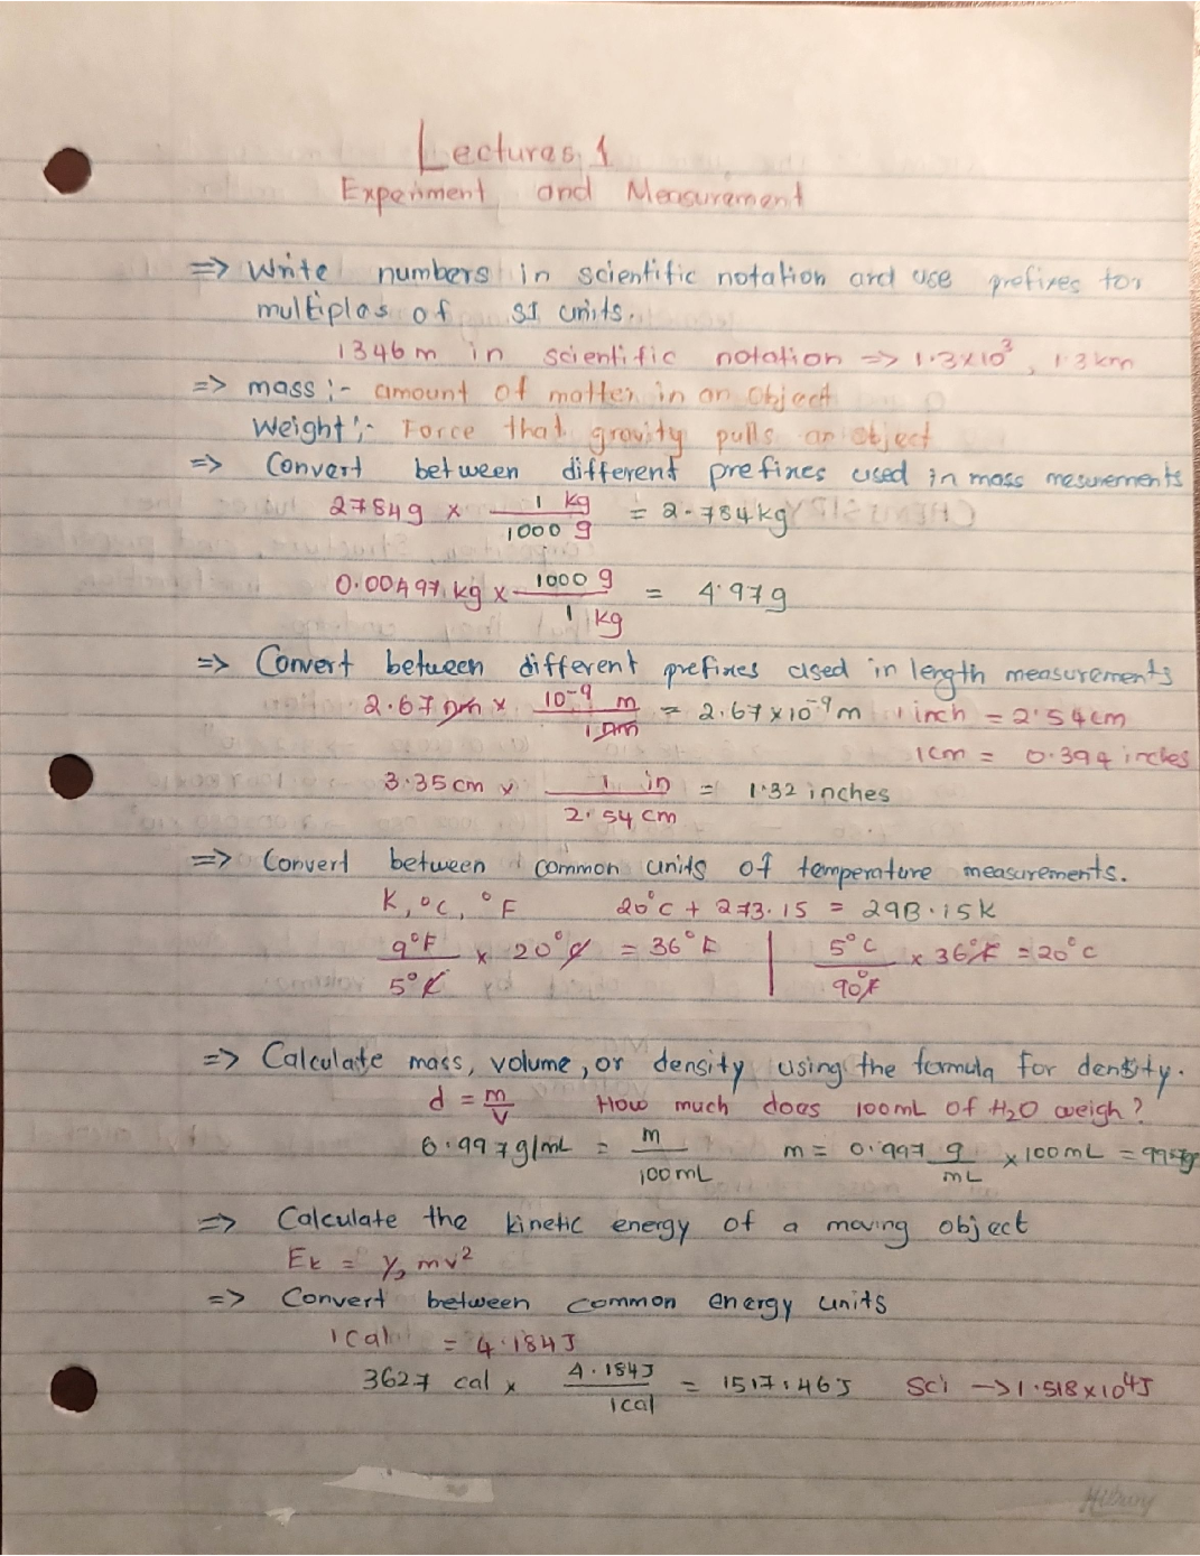 Lectures 1
Experiment and Measurement
=> Write numbers in scientific notation and use prefixes for
multiples of SI units.
1346m in scientific notation => 1.3x10³, 1.3km
=> mass :- amount of matter in an object
Weight :- Force that gravity pulls an object
=> Convert between different prefixes used in mass mesurements
2784g x 1 kg / 1000 g = 2.784kg
0.00497 kg x 1000 g / 1 kg = 4.97g
=> Convert between different prefixes used in length measurements
2.67 nm x 10⁻⁹ m / 1 nm = 2.67x10⁻⁹m 1 inch = 2.54cm
1cm = 0.394 inches
3.35cm x 1 in / 2.54 cm = 1.32 inches
=> Convert between common units of temperature measurements.
K, °C, °F 20°C + 273.15 = 293.15K
9°F / 5°C x 20°C = 36°F | 5°C / 9°F x 36°F = 20°C
=> Calculate mass, volume, or density using the formula for density.
d = m/V How much does 100mL of H₂O weigh?
0.997g/mL = m / 100mL m = 0.997 g / mL x 100mL =
=> Calculate the kinetic energy of a moving object
Ek = ½ mv²
=> Convert between common energy units
1cal = 4.184J
3627 cal x 4.184J / 1cal = 1517.46J Sci -> 1.518x10⁴J